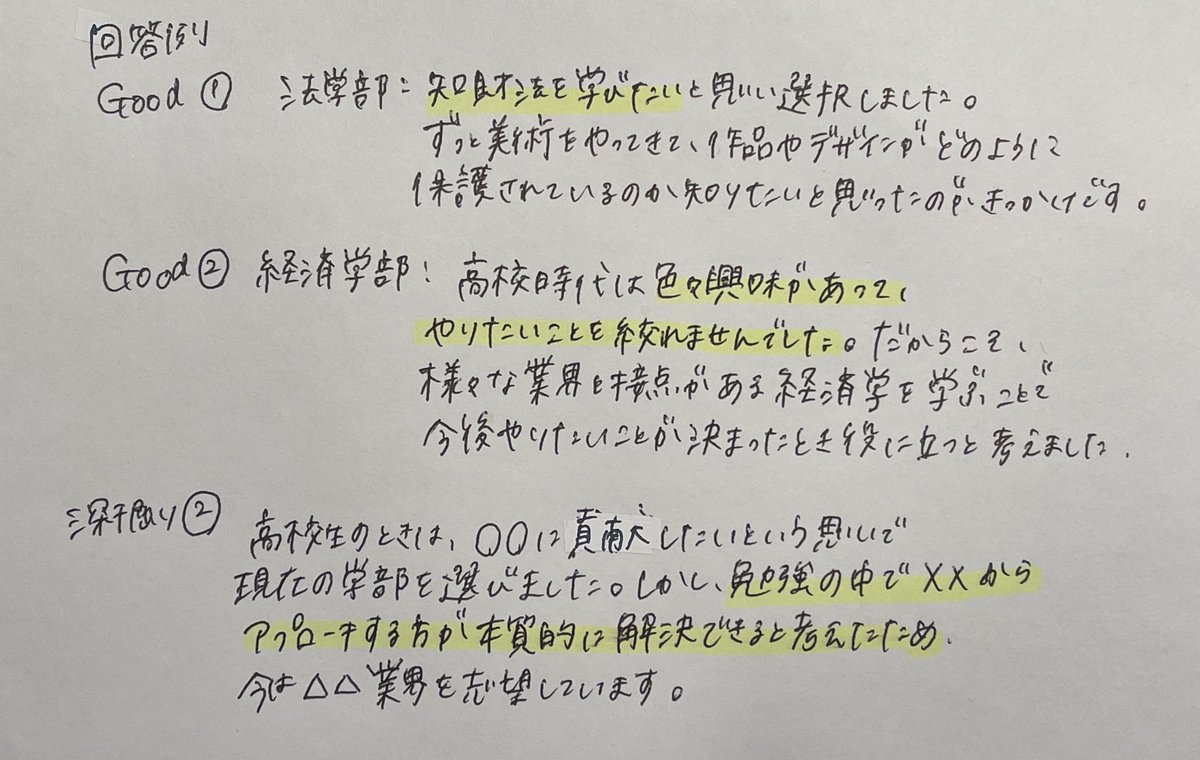 回答例
Good① 法学部：知財法を学びたいと思い選択しました。
ずっと美術をやってきて、作品やデザインがどのように
保護されているのか知りたいと思ったのがきっかけです。
Good② 経済学部：高校時代は色々興味があって、
やりたいことを絞れませんでした。だからこそ、
様々な業界と接点がある経済学を学ぶことで
今後やりたいことが決まったとき役に立つと考えました.
深掘り② 高校生のときは、○○に貢献したいという思いで
現在の学部を選びました。しかし、勉強の中で××から
アプローチする方が本質的に解決できると考えたため、
今は△△業界を志望しています。